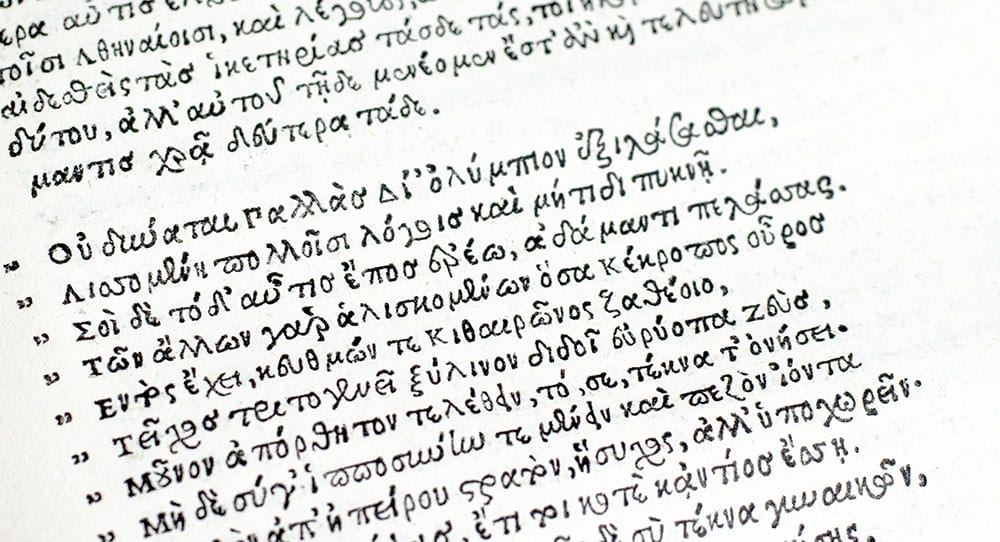 αὖτις
τοῖσι Ἀθηναίοισι, καὶ
τὰς ἱκετηρίας τάσδε τάς,
δύτου, ἀλλ' αὐτοῦ τῇδε μανέομεν ἔστ' ἂν καὶ
μαντις χρᾷ δεύτερα τάδε.
„ Οὐ δύναται Παλλὰς Δί' ὀλύμπιον ἐξιλάσασθαι,
„ Λισσομένη πολλοῖσι λόγοις καὶ μήτιδι πυκνῇ.
„ Σοὶ δὲ τόδ' αὖτις ἔπος ἐρέω, ἀδάμαντι πελάσσας.
„ Τῶν ἄλλων γὰρ ἁλισκομένων ὅσα Κέκροπος οὖρος
„ Εντὸς ἔχει, κευθμών τε Κιθαιρῶνος ζαθέοιο,
„ Τεῖχος τριτογενεῖ ξύλινον διδοῖ εὐρύοπα Ζεὺς,
„ Μοῦνον ἀπόρθητον τελέθειν, τό, σε, τέκνα τ' ὀνήσει.
„ Μὴ δὲ σύ γ' ἱπποσύνην τε μένειν καὶ πεζὸν ἰόντα
ἀπ' ἠπείρου στρατὸν, ἥσυχος, ἀλλ' ὑποχωρεῖν.
ἔτι τοι ποτὲ κἀντίος ἔσῃ.
δὲ σὺ τέκνα γυναικῶν,